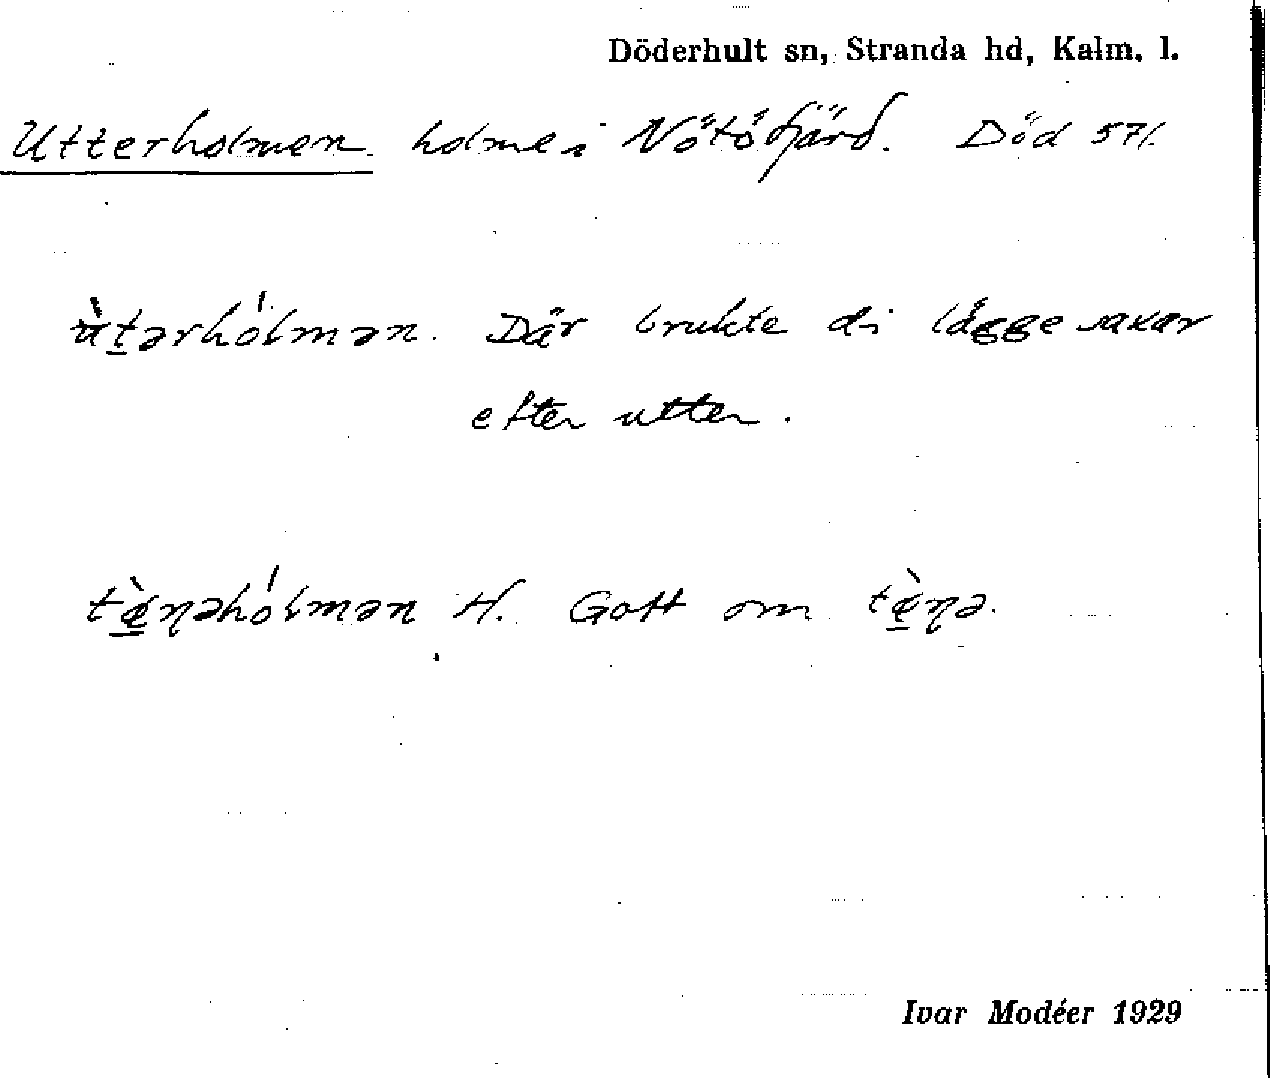 Döderhult sn, Stranda hd, Kalm. l.
Utterholmen holme i Nötöfjärd. Död 571.
ù̀t̲ərhólmən. Där brukte di lägge saxar
efter utter.
tæ̲̀ŋəhólmən H. Gott om tæ̲̀ŋə.
Ivar Modéer 1929